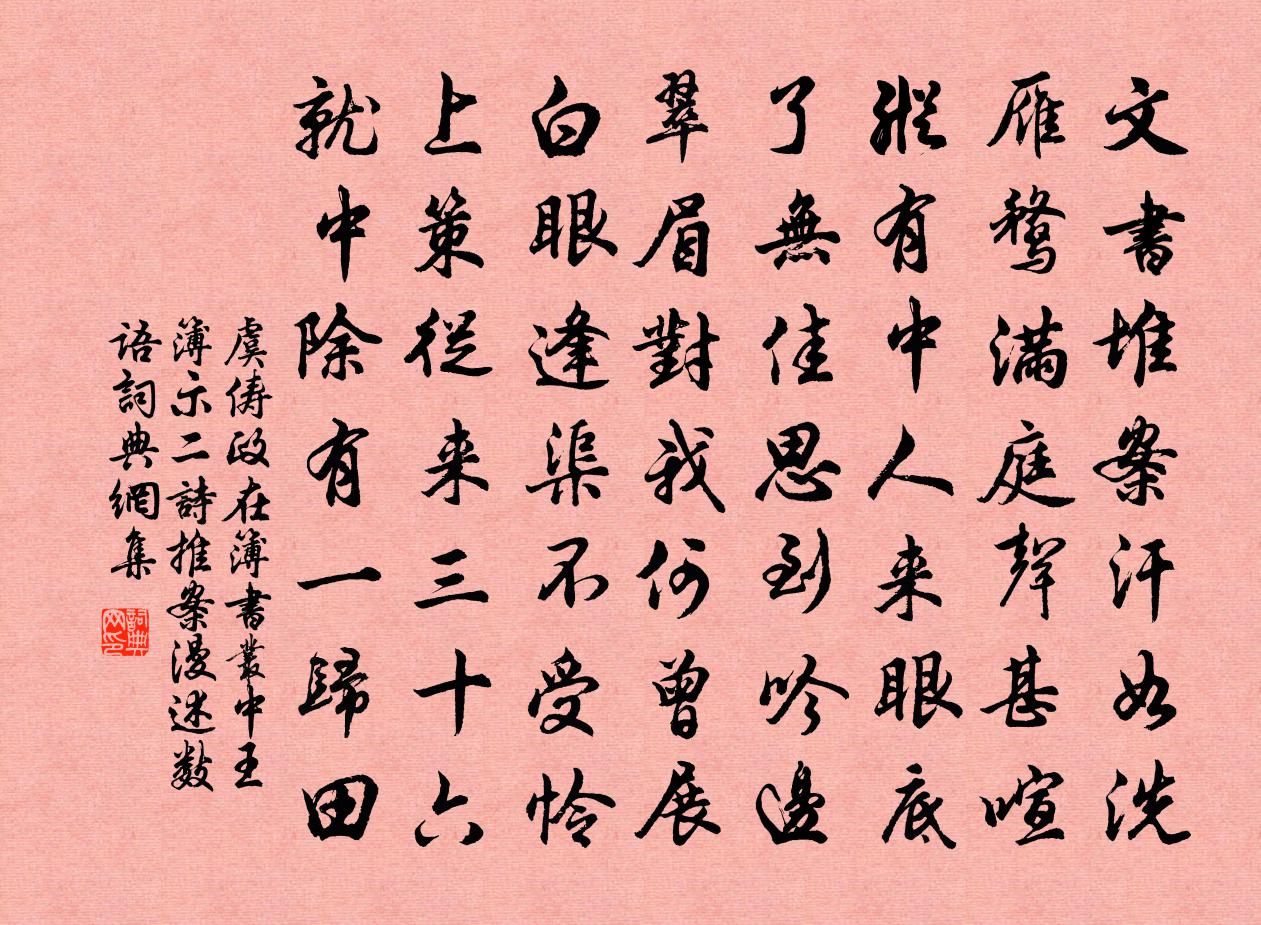 文書堆案汗如洗
雁鶩滿庭聲甚喧
縱有中人来眼底
了無佳思到吟邊
翠眉對我何曾展
白眼逢渠不受憐
上策從来三十六
就中除有一歸田
虞儔政在簿書叢中王
簿示二詩推案漫述数
語詞典網集
詞典
网印